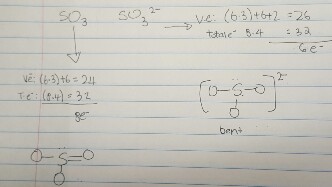 SO₃ SO₃²⁻ → ve: (6·3)+6+2 = 26
total e⁻ 8·4 = 32
6e⁻
ve: (6·3)+6 = 24
T.e⁻: (8·4) = 32
8e⁻
[O-S-O]²⁻
O
bent
O-S-O
O